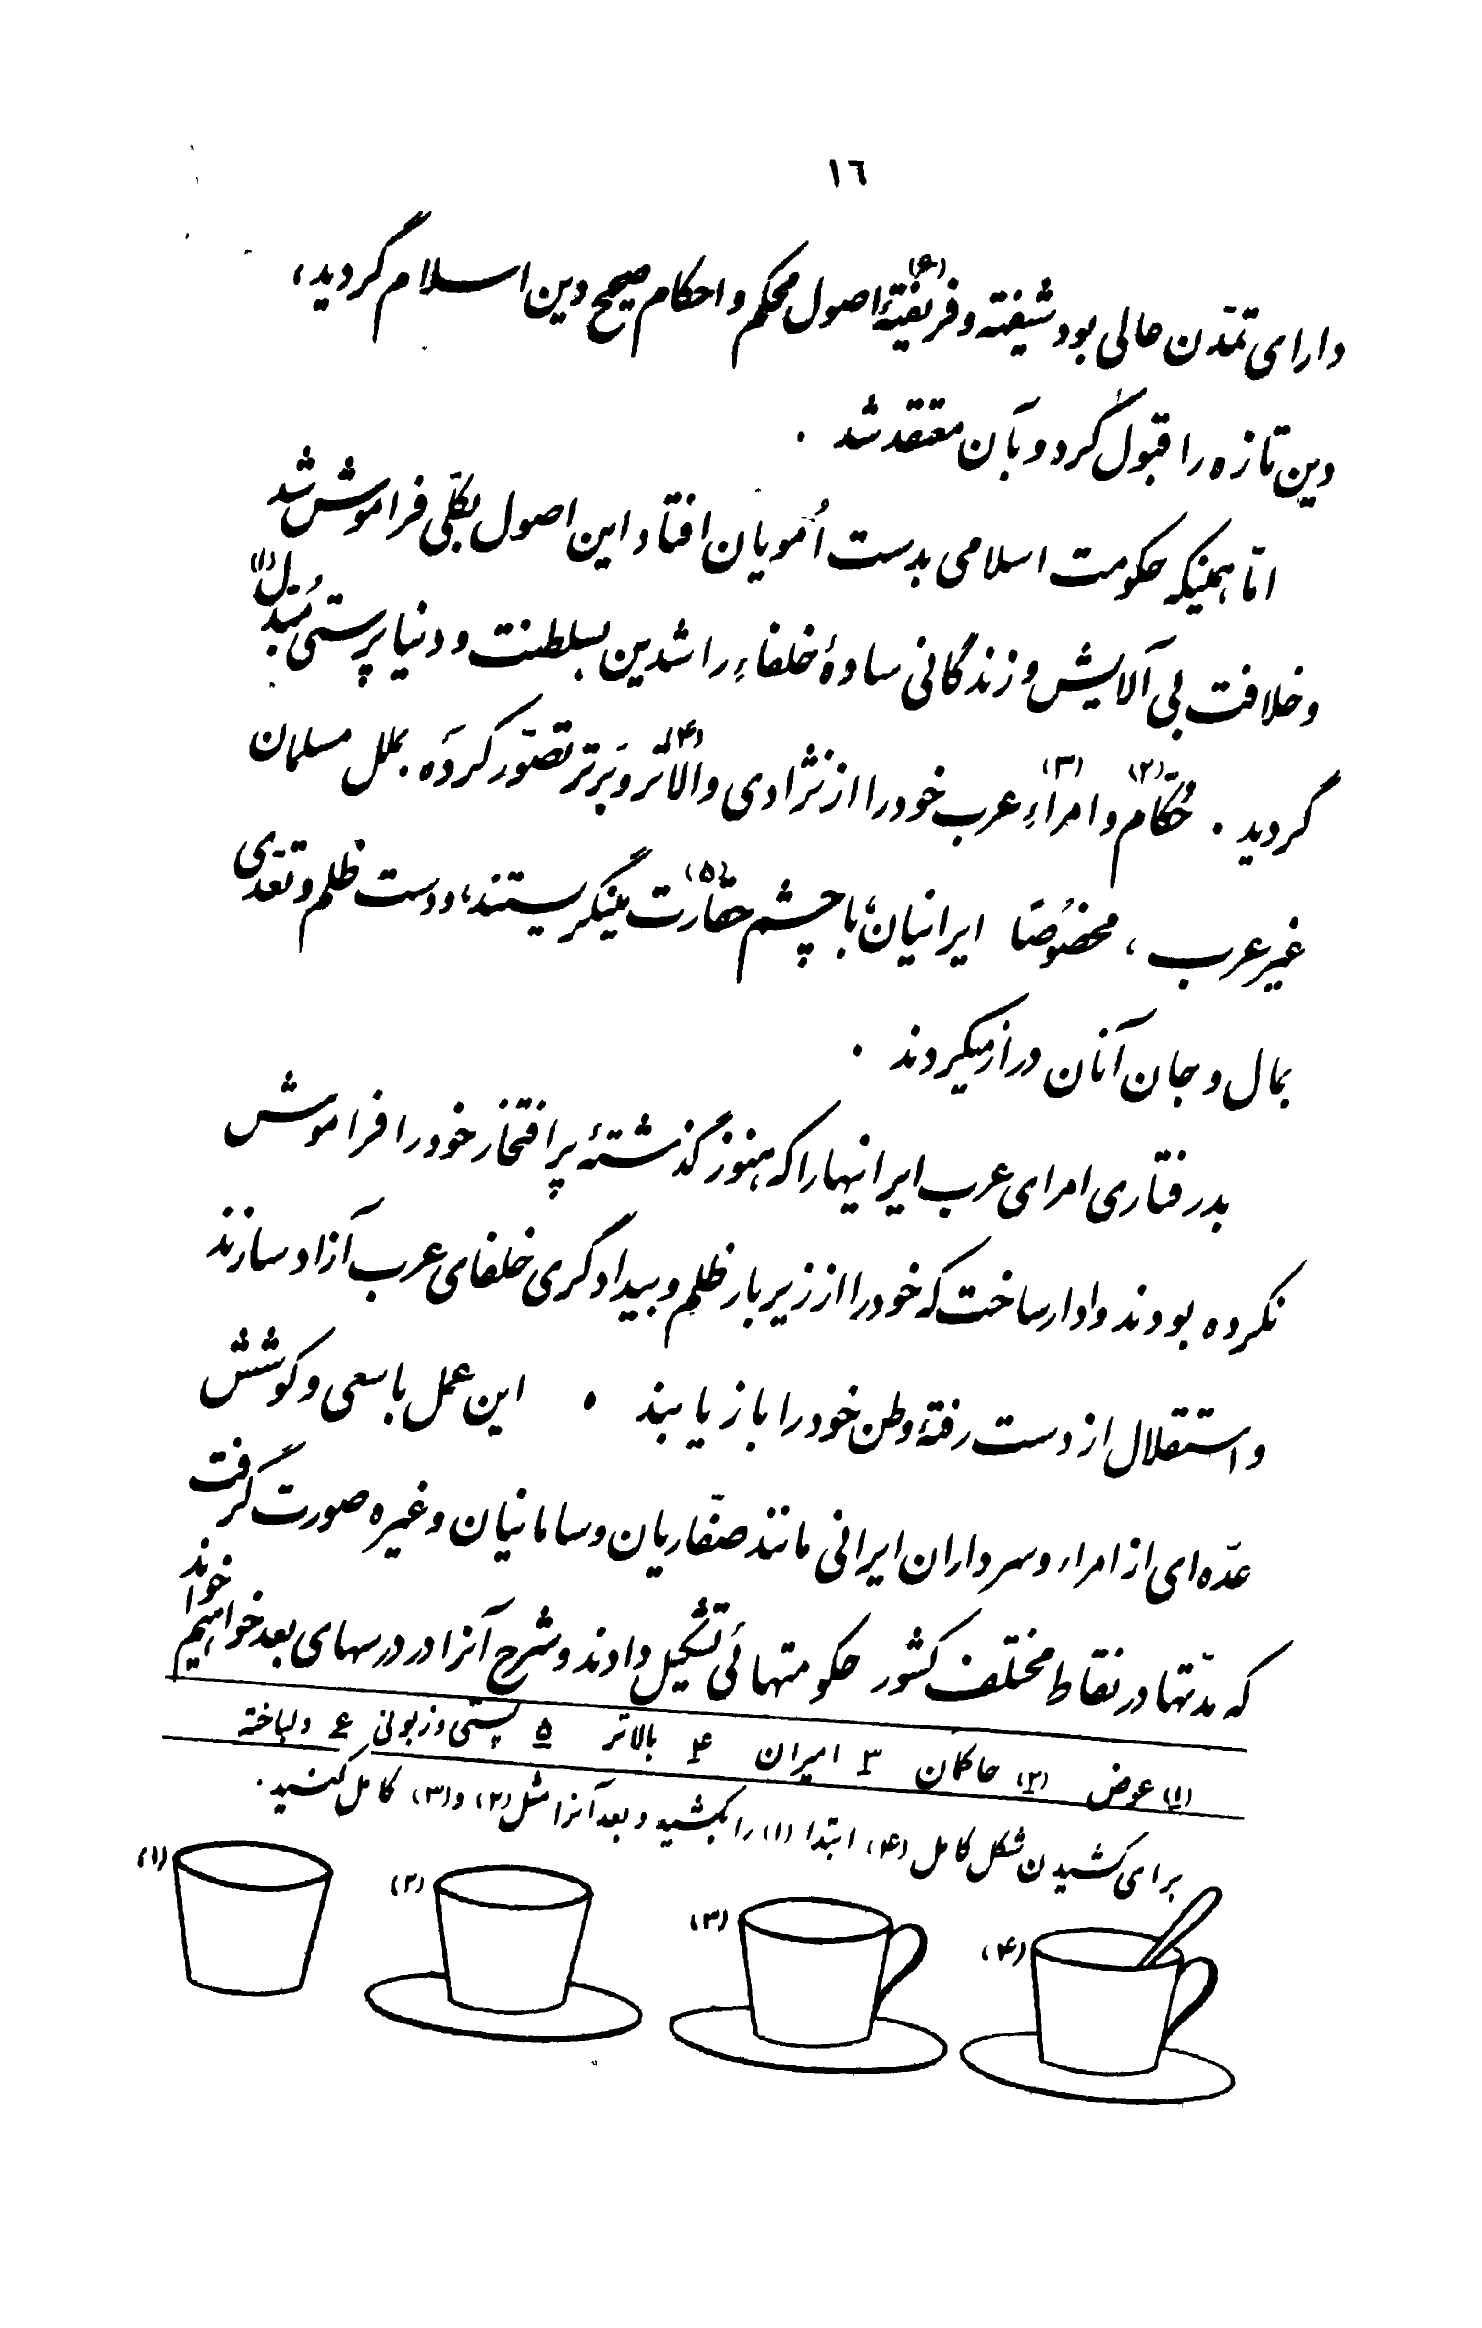 ١٦
دارای تمدّن عالی بود شیفته و فریفتهٔ(۶) اصول محکم و احکام صحیح دین اسلام گردید،
دین تازه را قبول کرد و بآن معتقد شد .
امّا همینکه حکومت اسلامی بدست اُمویان افتاد این اصول بکلّی فراموش شد
و خلافت بی آلایش و زندگانی سادهٔ خلفاءِ راشدین بسلطنت و دنیا پرستی مُبدّل(۱)
گردید . حُکّام(۲) و امراءِ(۳) عرب خود را از نژادی والاتر(۴) و بَرتر تصّور کردَه بملل مسلمان
غیر عرب ، مخصُوصًا ایرانیان، با چشم حقارت(۵) مینگریستند، و دست ظلم و تعدّی
بمال و جان آنان دراز میکردند .
بدرفتاری امرای عرب ایرانیها را که هنوز گذشتهٔ پر افتخار خود را فراموش
نکرده بودند وادار ساخت که خود را از زیر بار ظلم و بیدادگری خلفای عرب آزاد سازند
و استقلال از دست رفتهٔ وطن خود را باز یابند . این عمل با سعی و کوشش
عدّه‌ای از امراء و سرداران ایرانی مانند صفّاریان و سامانیان و غیره صورت گرفت
که مدّتها در نقاط مختلف کشور حکومتهائی تشکیل دادند و شرح آنرا در درسهای بعد خواهیم خواند
(۱) عوض (۲) حاکمان ۳ امیران ۴ بالاتر ۵ پستی و زبونی ۶ دلباخته
برای کشیدن شکل کامل (۴) ابتدا (۱) را بکشید و بعد آنرا مثل (۲) و (۳) کامل کنید .
(۱)
(۲)
(۳)
(۴)